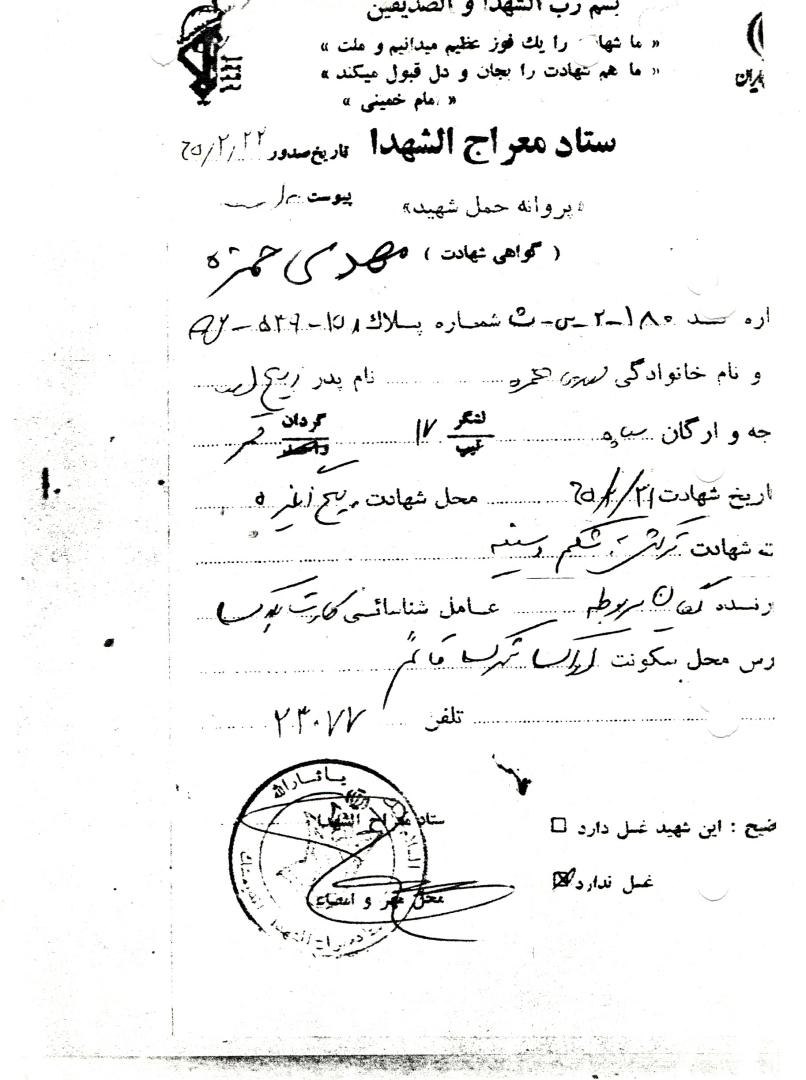 بسم رب الشهدا و الصدیقین
« ما شهادت را یك فوز عظیم میدانیم و ملت »
« ما هم شهادت را بجان و دل قبول میکند »
« امام خمینی »
ستاد معراج الشهدا
تاریخ صدور ۶۵/۲/۲۲
«پروانه حمل شهید»
پیوست
( گواهی شهادت ) مهدی حمزه
۱۸۰-۲-س-ث شماره پلاك
و نام خانوادگی مهدی حمزه نام پدر
جه و ارگان سپاه لشگر تیپ ۱۷ گردان واحد
اریخ شهادت ۶۵/۲/۲۱ محل شهادت
ته شهادت ترکش به شکم و سینه
رنده گردان مربوطه عامل شناسائی کارت
رس محل سکونت اراک شهرک قائم
تلفن ۲۳۰۷۷
ضیح : این شهید غسل دارد
غسل ندارد
ستاد معراج الشهدا
محل مهر و امضاء
یا ثارالله